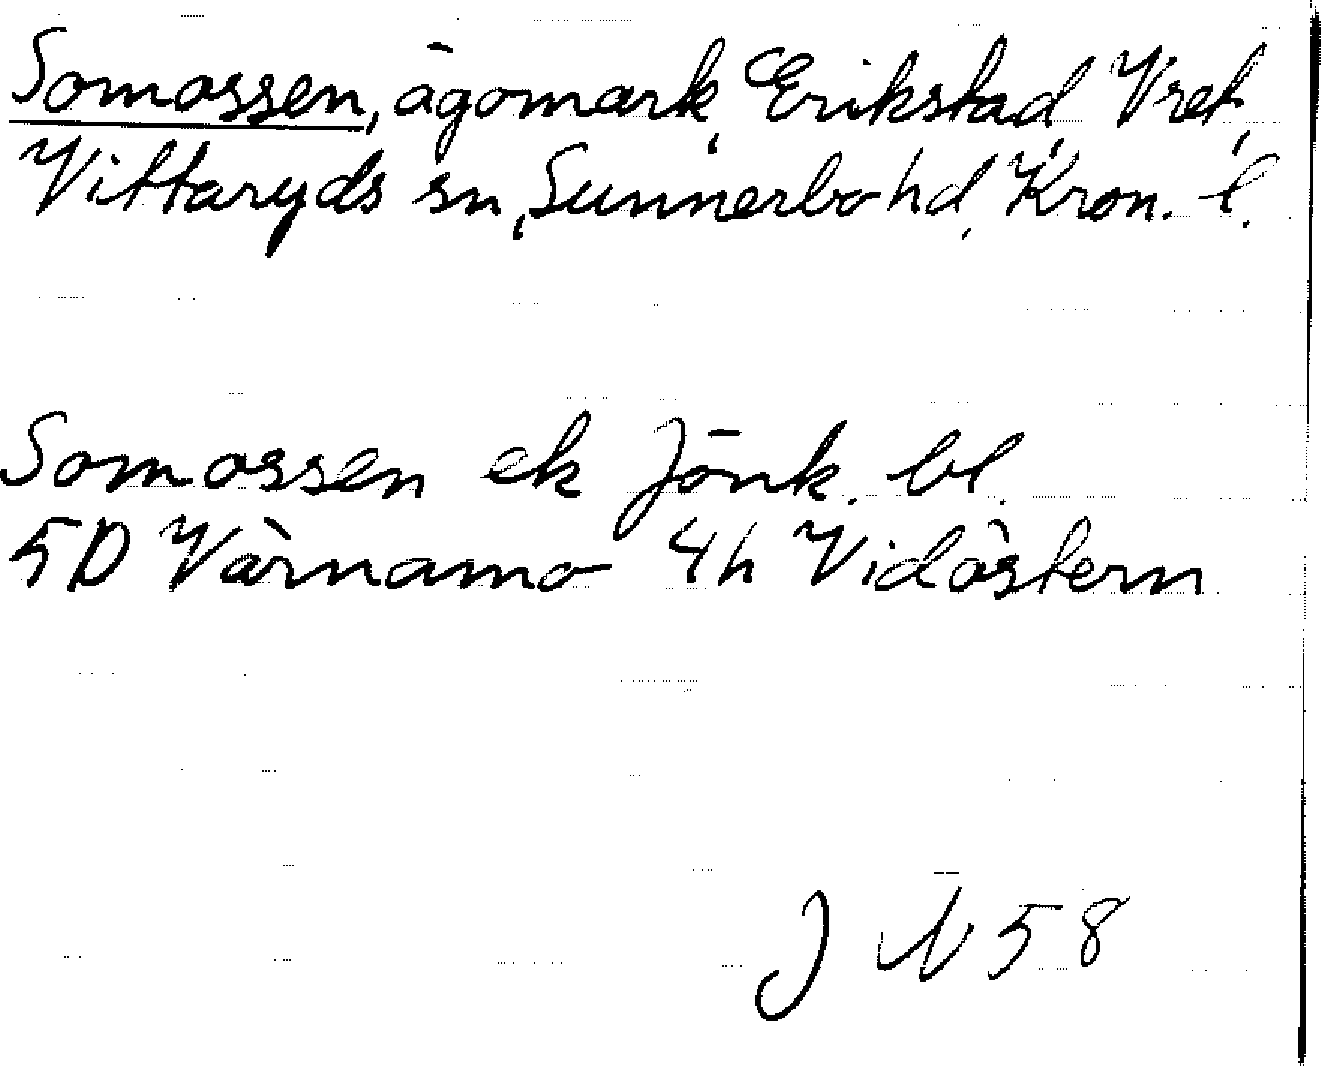 Somossen, ägomark, Erikstad, Vret,
Vittaryds sn, Sunnerbo hd, Kron. l.
Somossen ek Jönk. bl.
5D Värnamo 4h Vidöstern
J N 58